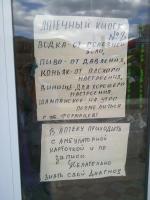 АПТЕЧНЫЙ КИОСК
№9½
ВОДКА-ОТ БОЛЕЗНЕЙ
ТЕЛА,
ПИВО-ОТ ДАВЛЕНИЯ,
КОНЬЯК-ОТ ПЛОХОГО
НАСТРОЕНИЯ,
ВИНИШКО ДЛЯ ХОРОШЕГО
НАСТРОЕНИЯ,
ШАМПАНСКОЕ НА УТРО
В АПТЕКУ ПРИХОДИТЬ
С АМБУЛАТОРНОЙ
КАРТОЧКОЙ И ПО
ЗАПИСИ.
ЖЕЛАТЕЛЬНО
ЗНАТЬ СВОЙ ДИАГНОЗ